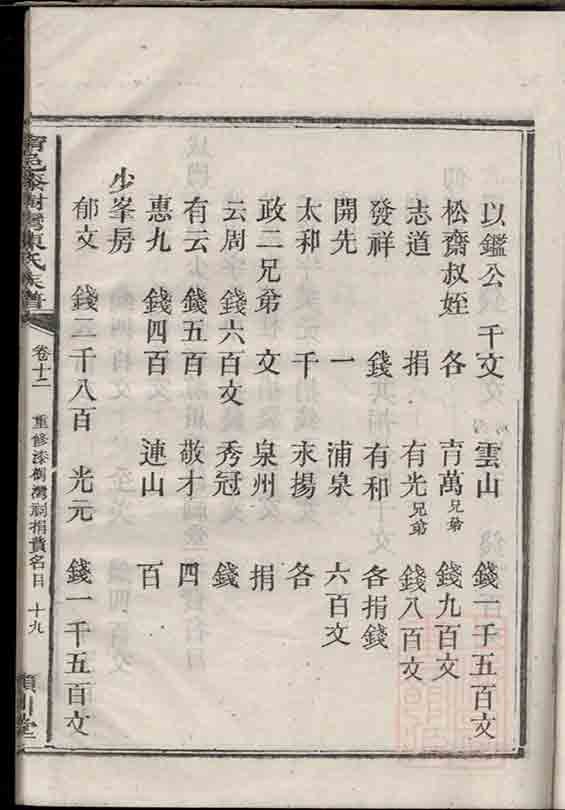 以鑑公 千文 雲山 錢一千五百文
松齋叔姪 各 青萬兄弟 錢九百文
志道 捐 有光兄弟 錢八百文
發祥 錢 有和 各捐錢
開先 一 浦泉 六百文
太和 千 永揚 各
政二兄弟 文 泉州 捐
云周 錢六百文 秀冠 錢
有云 錢五百 敬才 四
惠九 錢四百 連山 百
少峯房
郁文 錢二千八百 光元 錢一千五百文
甯邑漆樹灣陳氏族譜 卷十二 重修漆樹灣祠捐費名目 十九 潁川堂